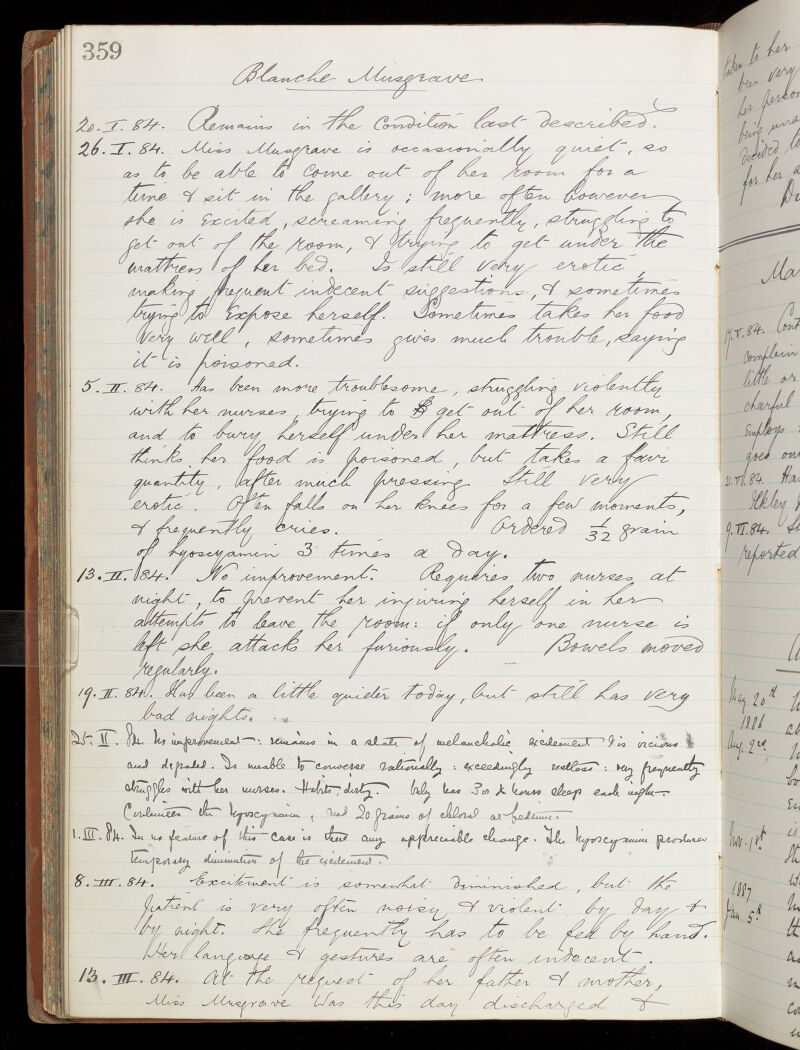 359
Blanche Musgrave
20. I. 84. Remains in the condition last described.
26. I. 84. Miss Musgrave is occasionally quiet, so
as to be able to come out of her room for a
time & sit in the gallery; more often however
she is excited, screaming frequently, struggling to
get out of the room, & trying to get under the
mattress of her bed. Is still very erotic,
making frequent indecent suggestions, & sometimes
trying to expose herself. Sometimes takes her food
very well, sometimes gives much trouble, saying
it is poisoned.
5. II. 84. Has been more troublesome, struggling violently
with her nurses, trying to get out of her room,
and to bury herself under her mattress. Still
thinks her food is poisoned, but takes a fair
quantity, after much pressing. Still very
erotic. Often falls on her knees for a few moments,
& frequently cries. Ordered 1/32 grain
of hyoscyamin 3 times a day.
13. II. 84. No improvement. Requires two nurses at
night, to prevent her injuring herself in her
attempts to leave the room: if only one nurse is
left she attacks her furiously. Bowels moved
regularly.
19. II. 84. Has been a little quieter today, but still has very
bad nights.
25. II. 84. No improvement: remains in a state of melancholic excitement & is vicious
and degraded. Is unable to converse rationally: exceedingly restless: very frequently
struggles with her nurses. Habits dirty. Only has 3 or 4 hours sleep each night.
Continues the hyoscyamin, and 20 grains of chloral at bedtime.
1. III. 84. In no feature of this case is there any appreciable change. The hyoscyamin produces
temporary diminution of the excitement.
8. III. 84. Excitement is somewhat diminished, but the
patient is very often noisy & violent by day &
by night. She frequently has to be fed by hand.
Her language & gestures are often indecent.
13. III. 84. At the request of her father & mother,
Miss Musgrave was this day discharged &
taken to her
been very
her person
being una
decided to
for her a
Ma
17. V. 84. Cont
complain
little or
cheerful
Employs
goes out
21. V. 84. Ha
Ilkley
9. VI. 84.
reported
May 20th
1886
Aug. 2nd
Nov. 1st
1887
Jan. 5th